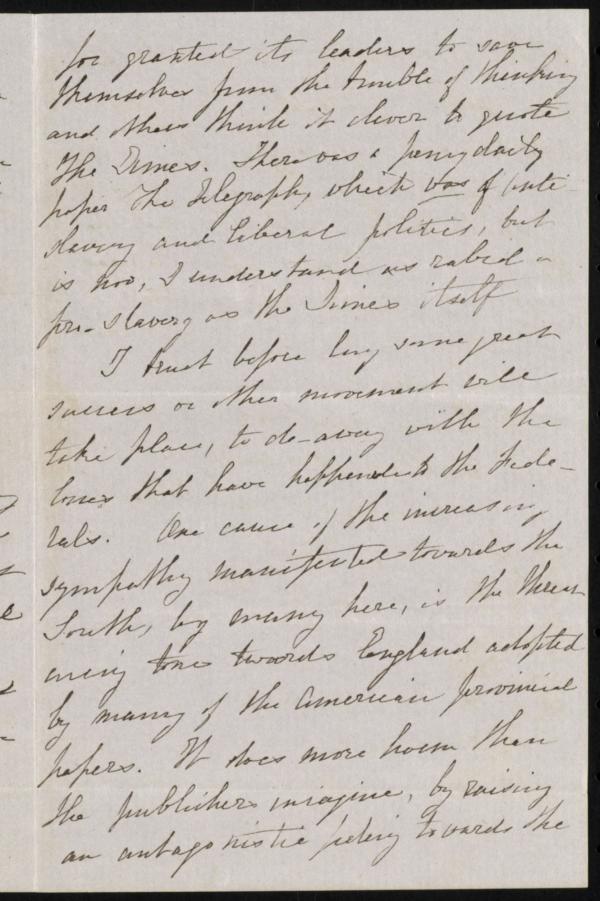 for granted its leaders to save
themselves from the trouble of thinking
and others think it clever to quote
The Times. There was a penny daily
paper The Telegraph, which was of anti-
slavery and liberal politics, but
is now, I understand as rabid a
pro-slavery as the Times itself
I trust before long some great
success or other movement will
take place, to do-away with the
losses that have happened to the Fede-
rals. One cause of the increasing
sympathy manifested towards the
South, by many here, is the threat-
ening tone towards England adopted
by many of the American provincial
papers. It does more harm than
the publishers imagine, by raising
an antagonistic feeling towards the